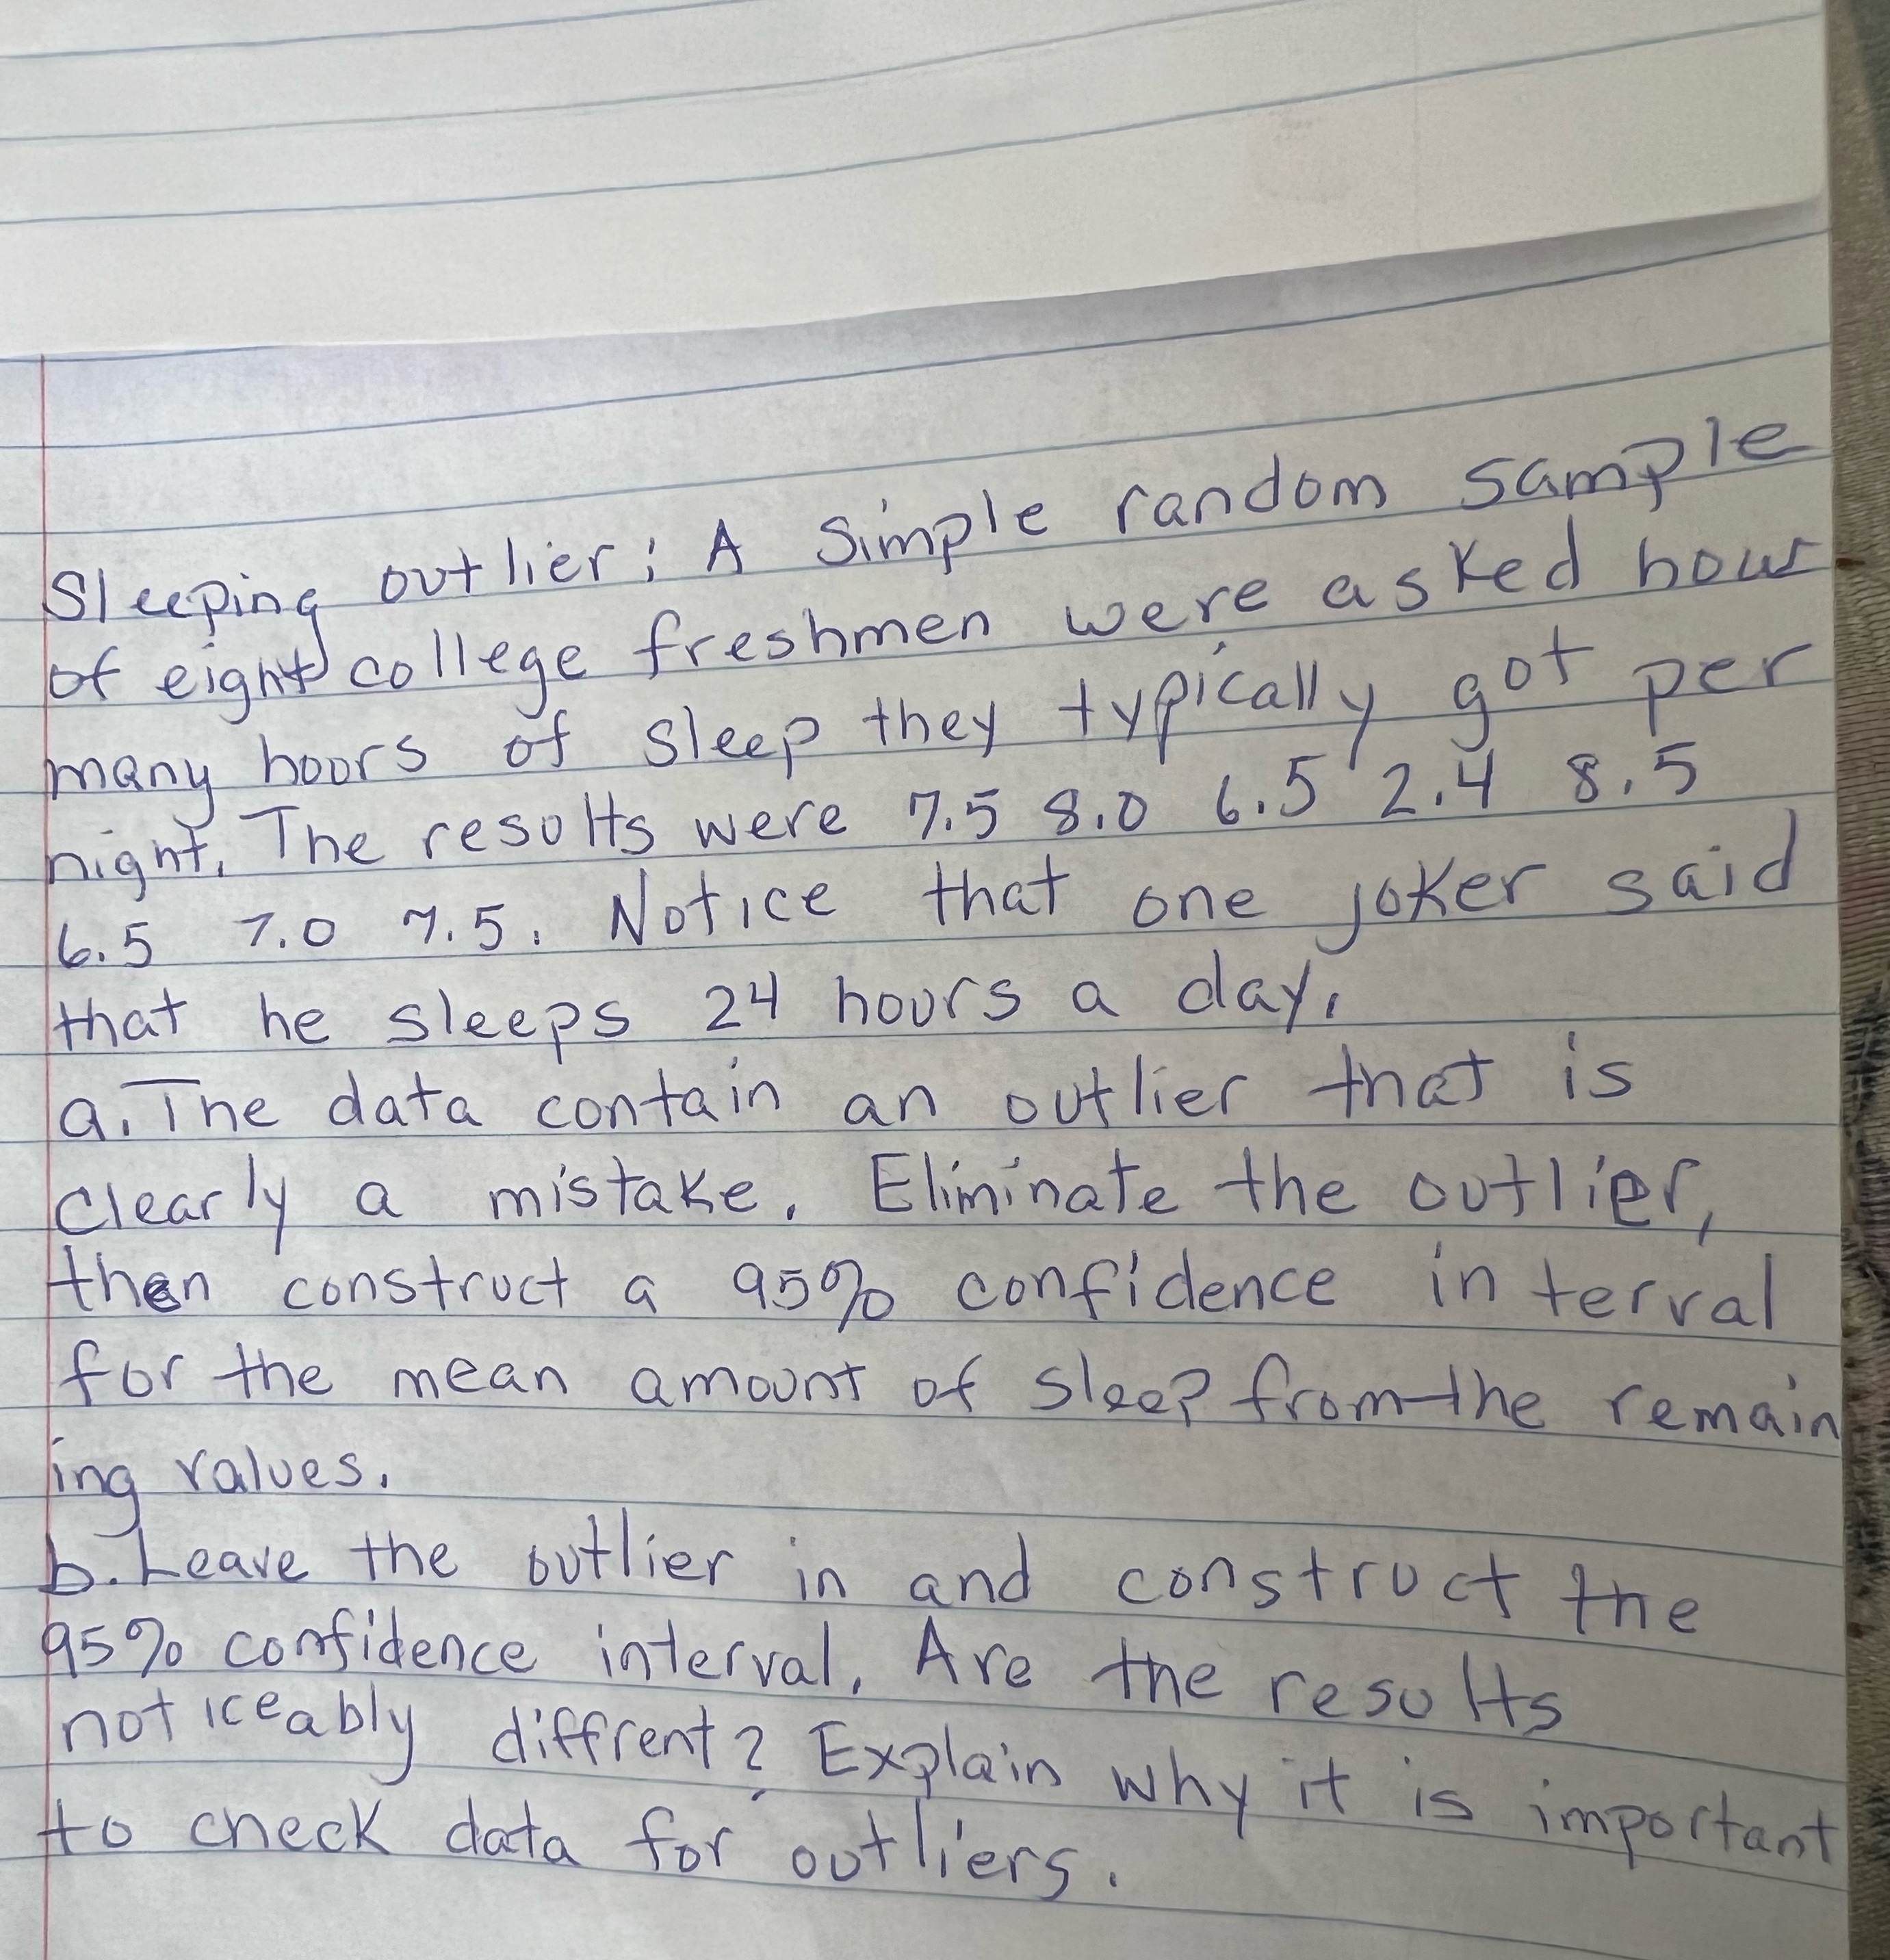 Sleeping outlier: A Simple random sample
of eight college freshmen were asked how
many hours of sleep they typically got per
night. The results were 7.5 8.0 6.5 2.4 8.5
6.5 7.0 7.5. Notice that one joker said
that he sleeps 24 hours a day.
a. The data contain an outlier that is
clearly a mistake. Eliminate the outlier,
then construct a 95% confidence interval
for the mean amount of sleep from the remain
ing values.
b. Leave the outlier in and construct the
95% confidence interval. Are the results
noticeably diffrent? Explain why it is important
to check data for outliers.